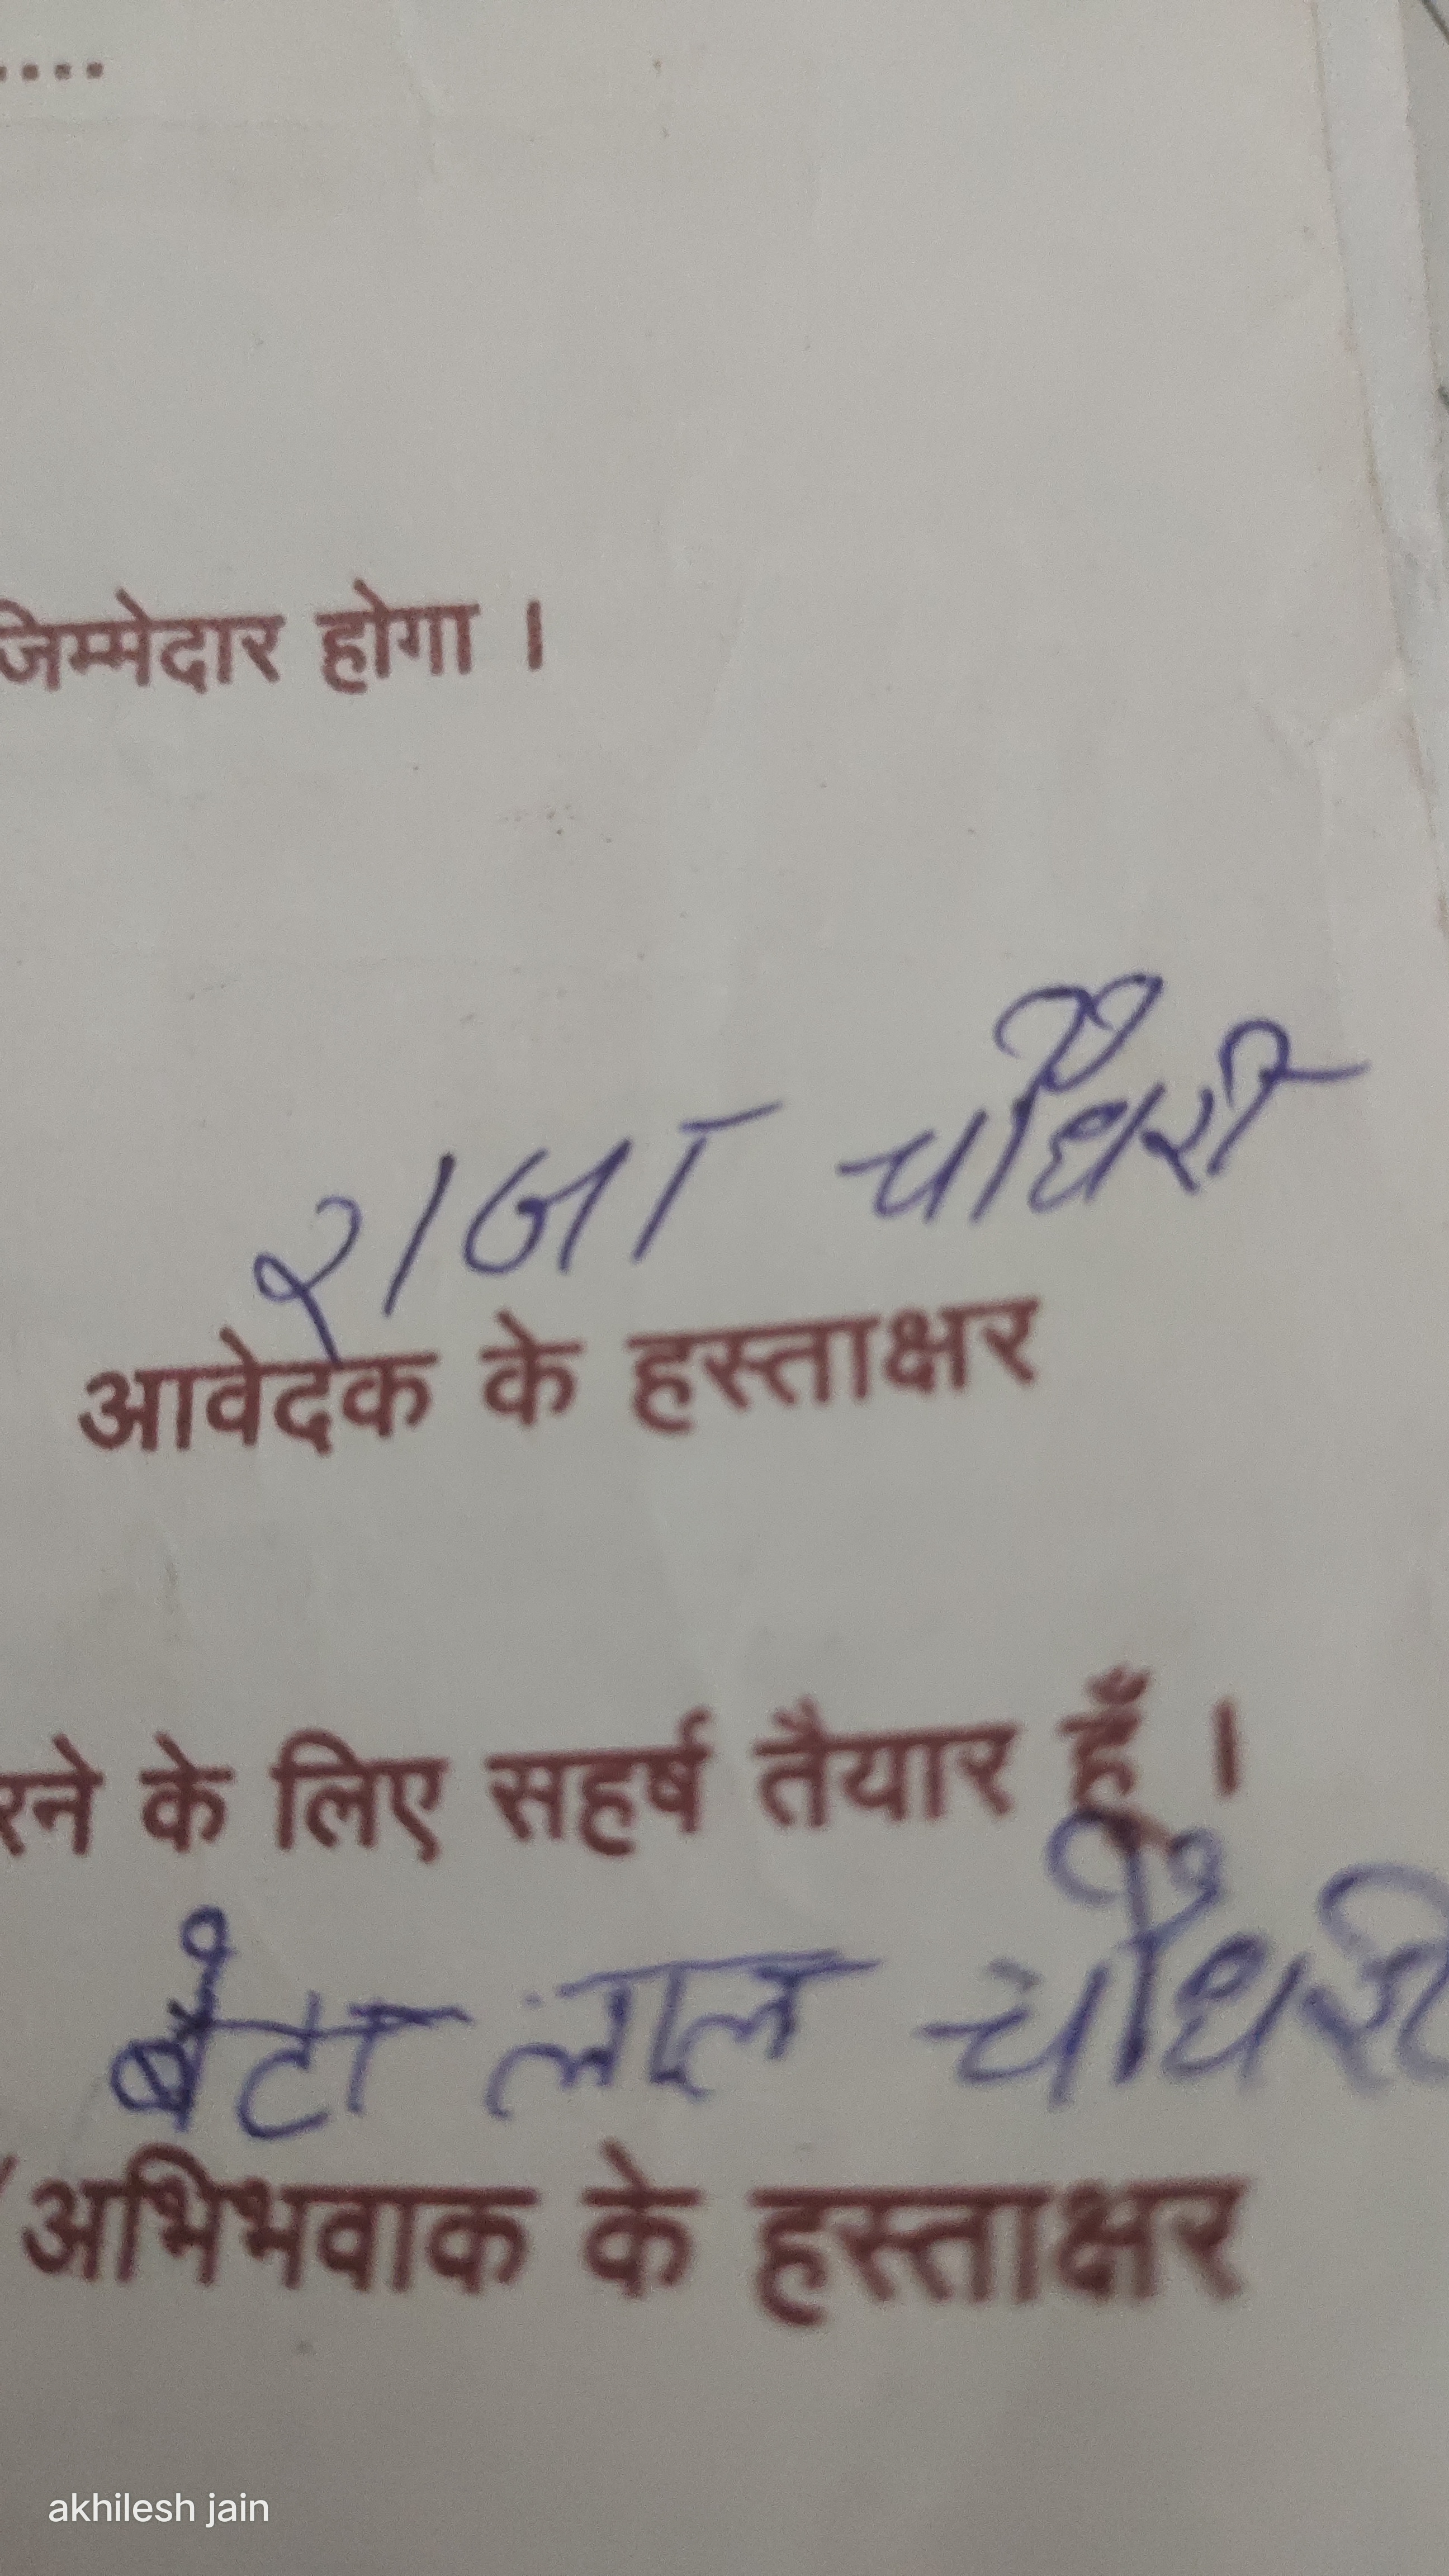 ....
जिम्मेदार होगा ।
राजा चौधरी
आवेदक के हस्ताक्षर
रने के लिए सहर्ष तैयार हूँ ।
बेटा लाल चौधरी
अभिभवाक के हस्ताक्षर
akhilesh jain